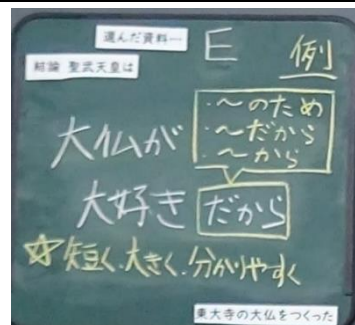 選んだ資料…
E
例
結論 聖武天皇は
・〜のため
・〜だから
・〜から
大仏が
大好きだから
☆短く、大きく、分かりやすく
東大寺の大仏をつくった